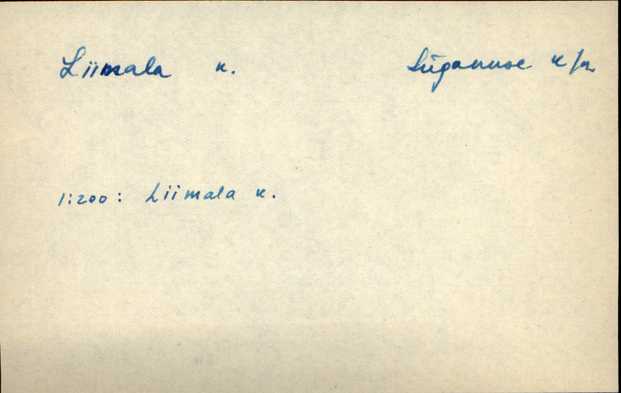 Liimala k. Lüganuse k/n
1:200: Liimala k.